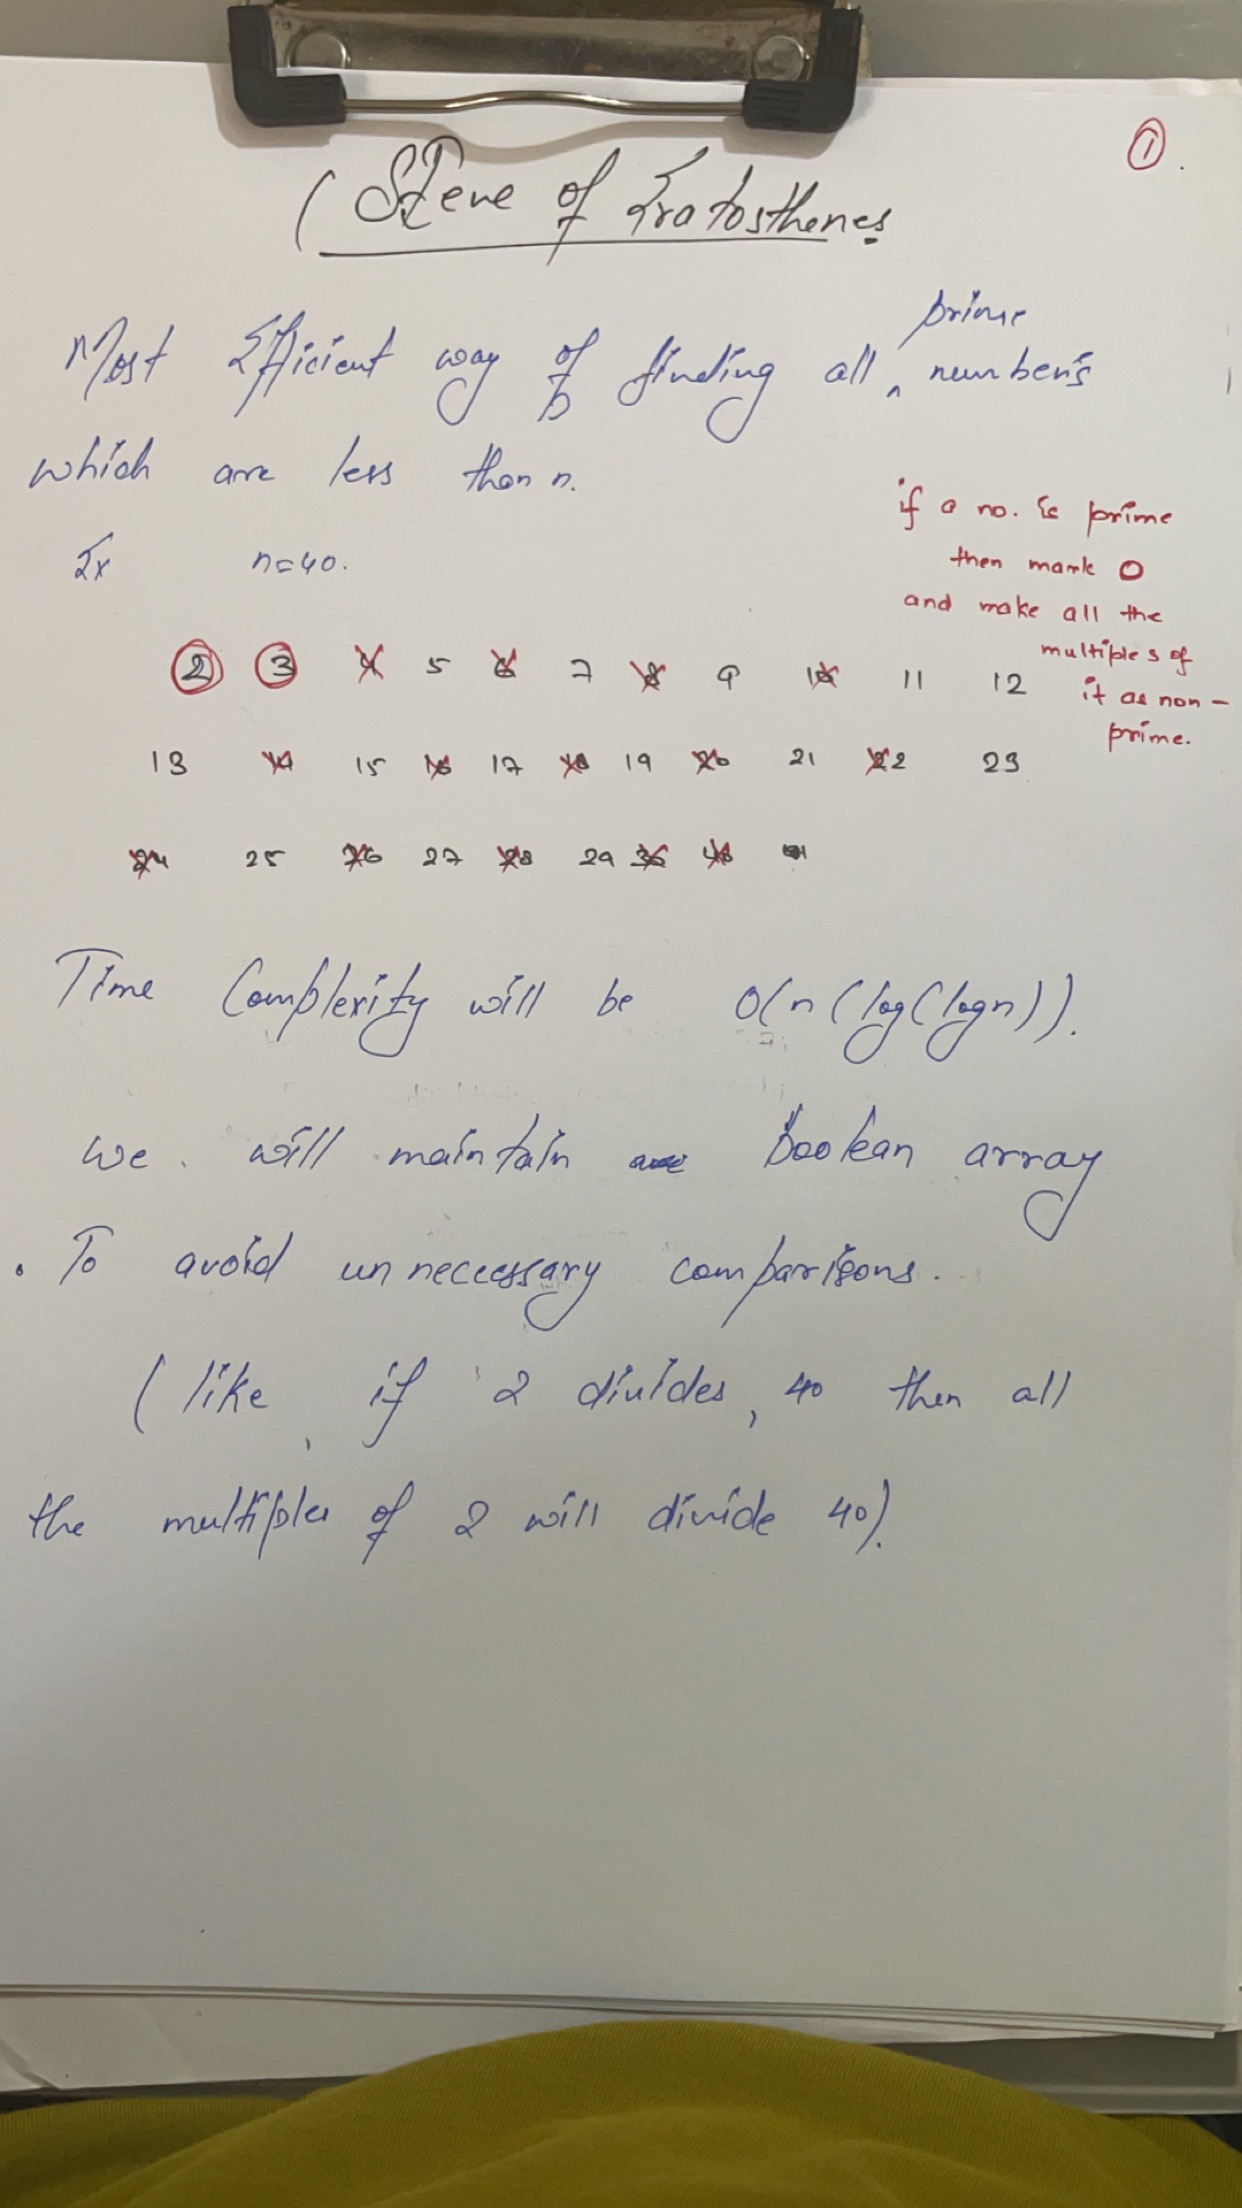 ①.
( Sieve of Eratosthenes
Most Efficient way of finding all prime number's
which are less than n.
Ex n=40.
if a no. is prime
then mark O
and make all the
multiples of
it as non-
prime.
2 3 4 5 6 7 8 9 10 11 12
13 14 15 16 17 18 19 20 21 22 23
24 25 26 27 28 29 30 40
Time Complexity will be O(n(log(logn)).
we will maintain boolean array
• To avoid unneccessary comparisons.
(like, if 2 divides, 40 then all
the multiples of 2 will divide 40).